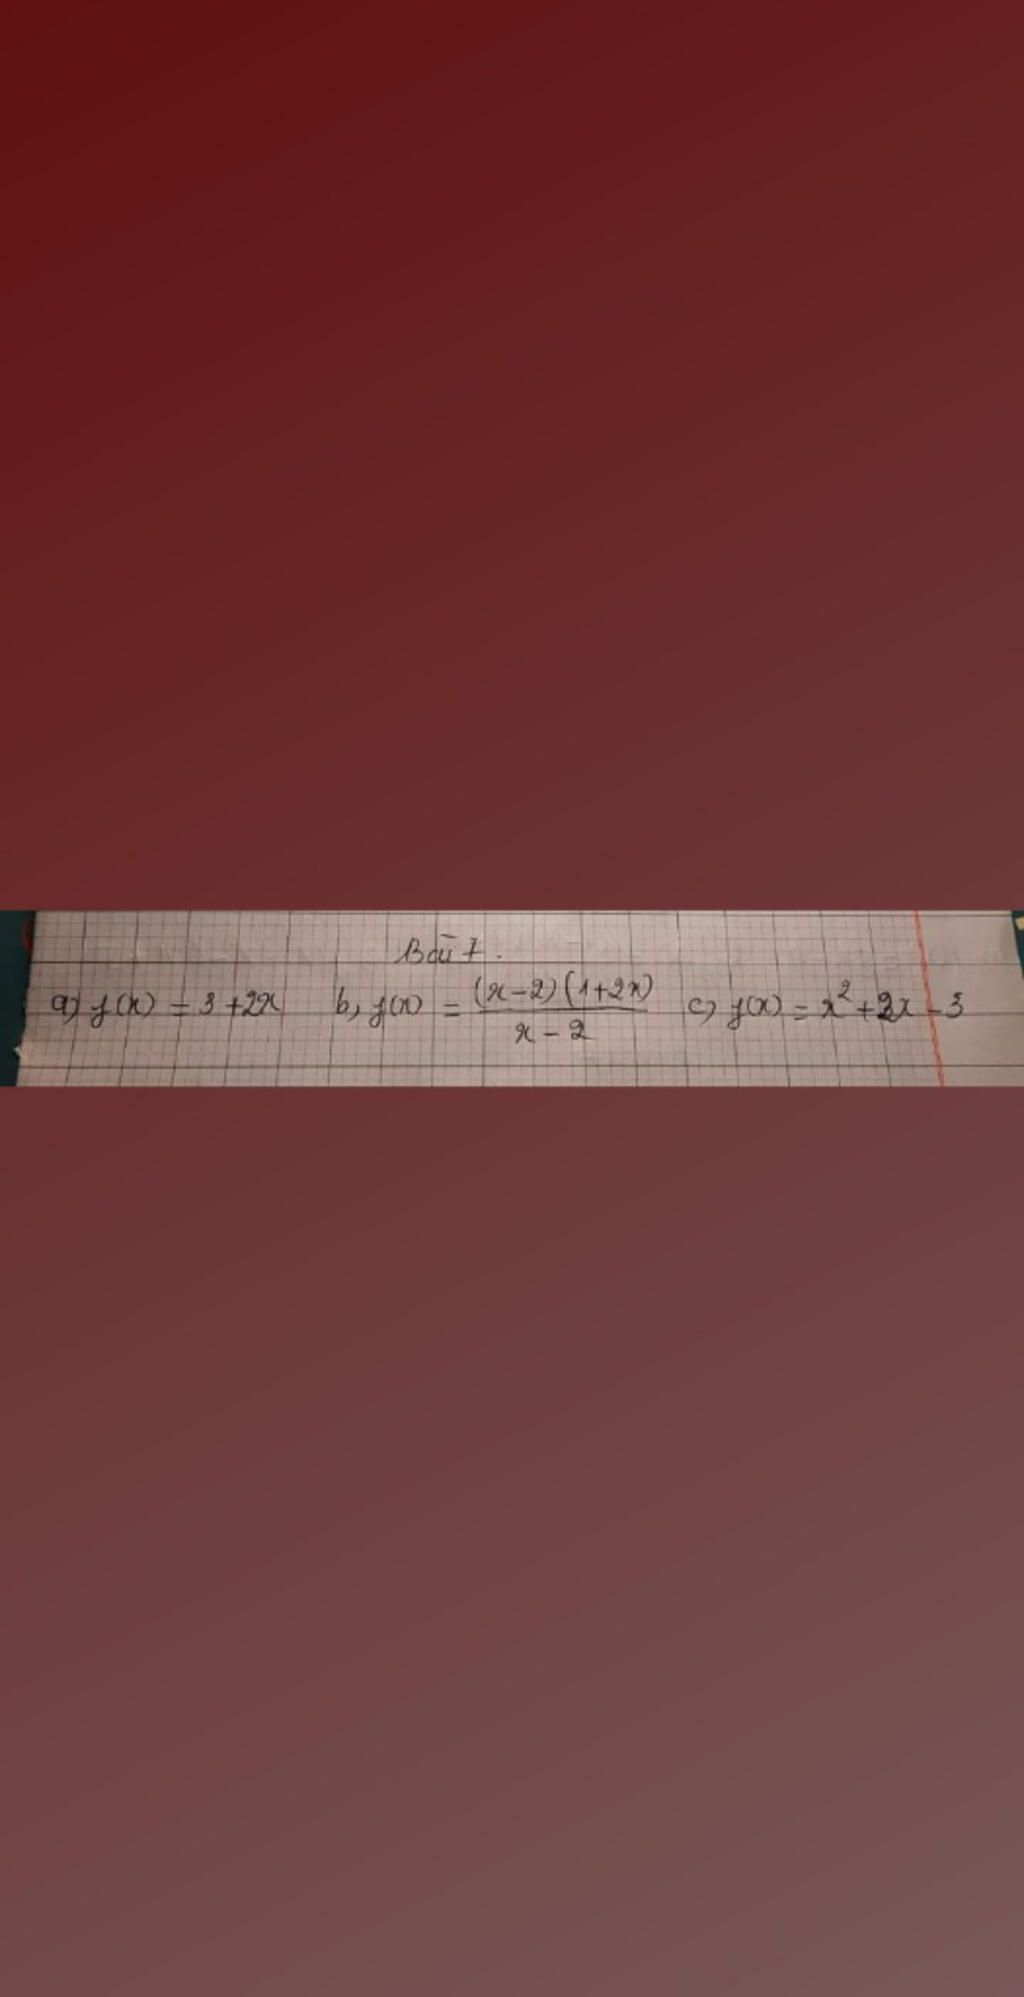 Bài 7.
a) f(x) = 3 + 2x b, f(x) = (x-2)(1+2x) / x - 2 c, f(x) = x² + 2x - 3